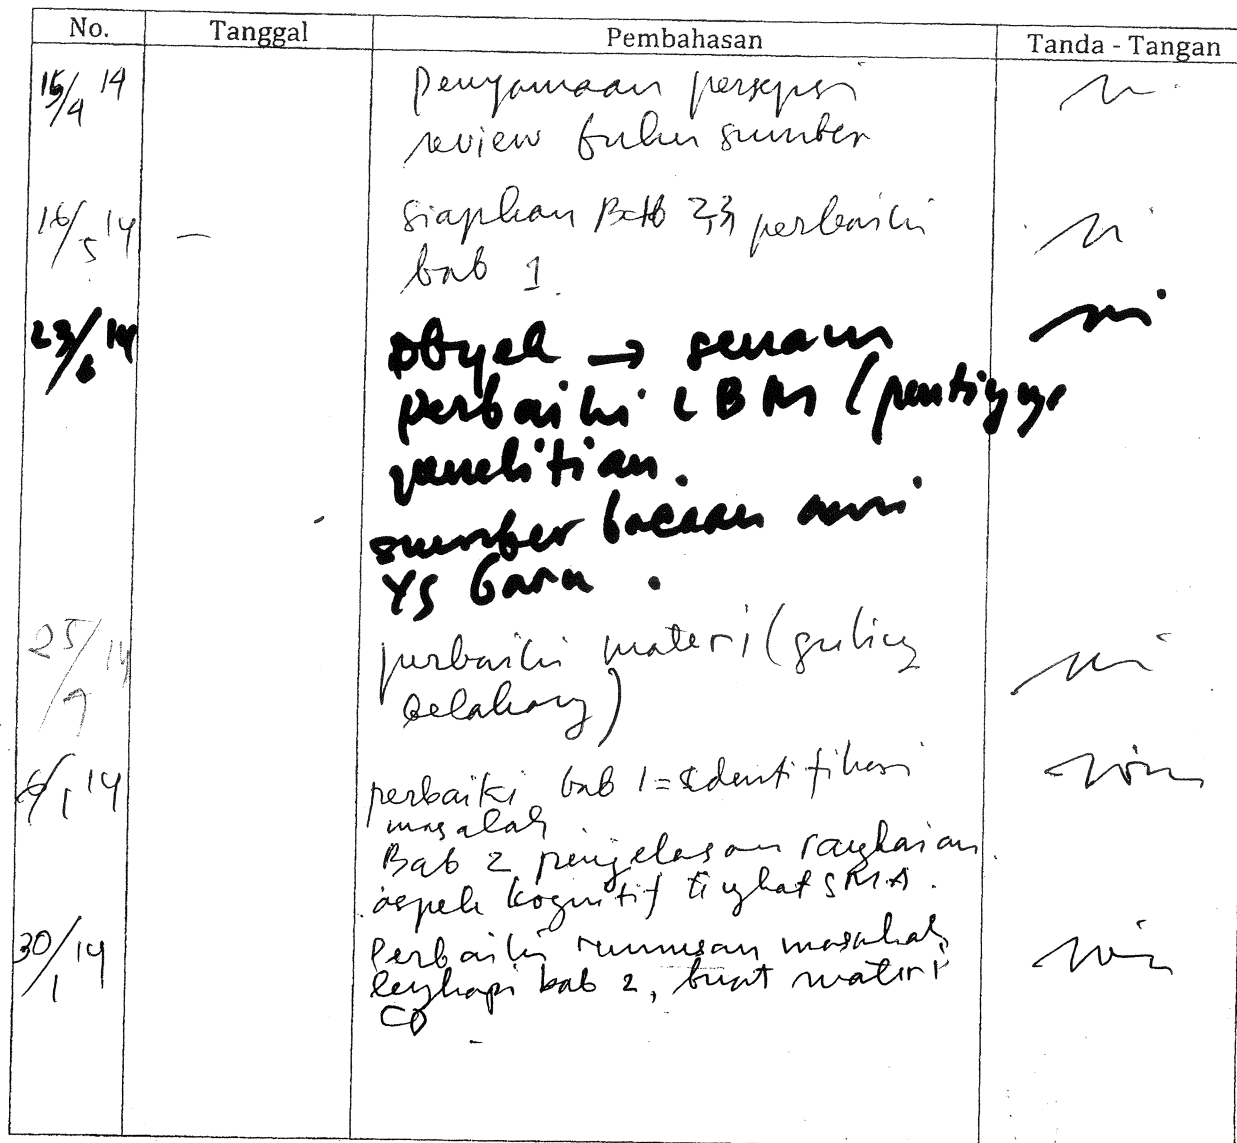 No. Tanggal Pembahasan Tanda - Tangan
15/4 14 Penyamaan persepsi
review buku sumber
16/5 14 - siapkan Bab 2,3 perbaiki
bab 1.
23/6 14 Obyek → senam
perbaiki LBM (pentingnya
penelitian.
sumber bacaan
yg baru.
25/7 14 perbaiki materi (guling
belakang)
6/1 14 perbaiki bab 1 = identifikasi
masalah
Bab 2 penjelasan rangkaian
aspek kognitif tingkat SMA.
30/1 14 Perbaiki rumusan masalah,
lengkapi bab 2, buat materi
CD